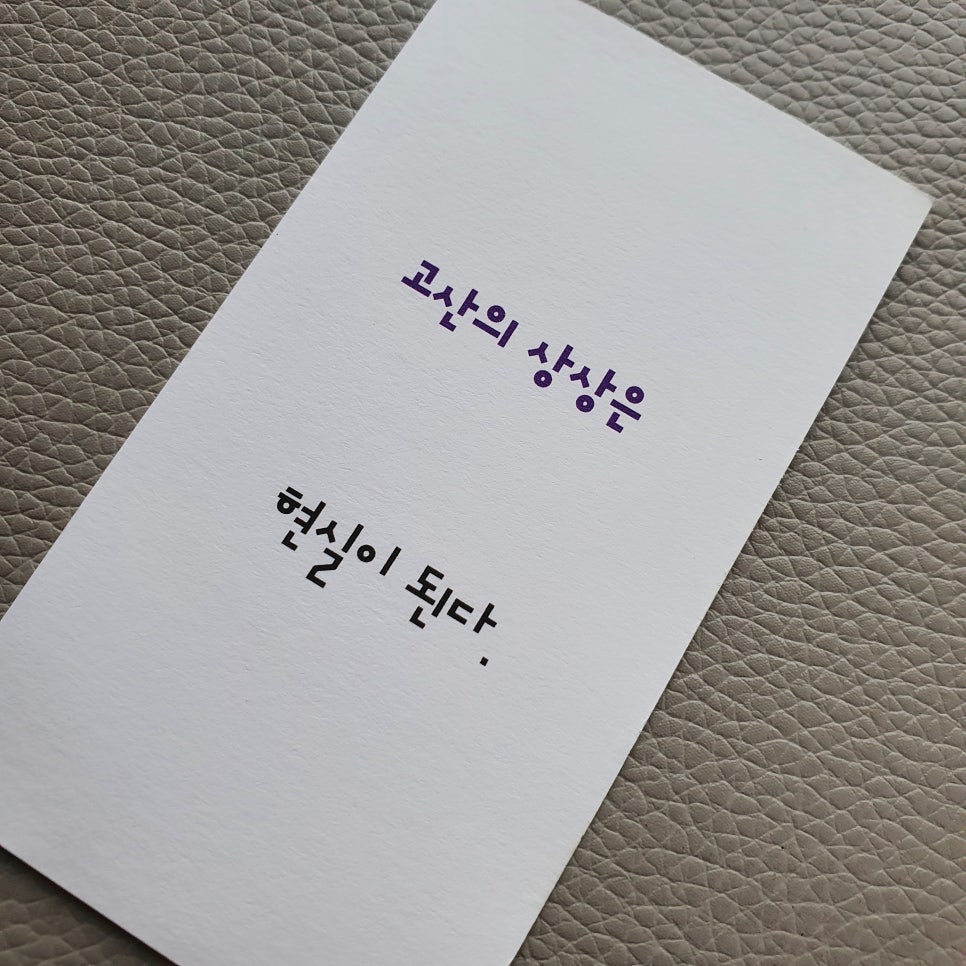 고산의 상상은
현실이 된다.